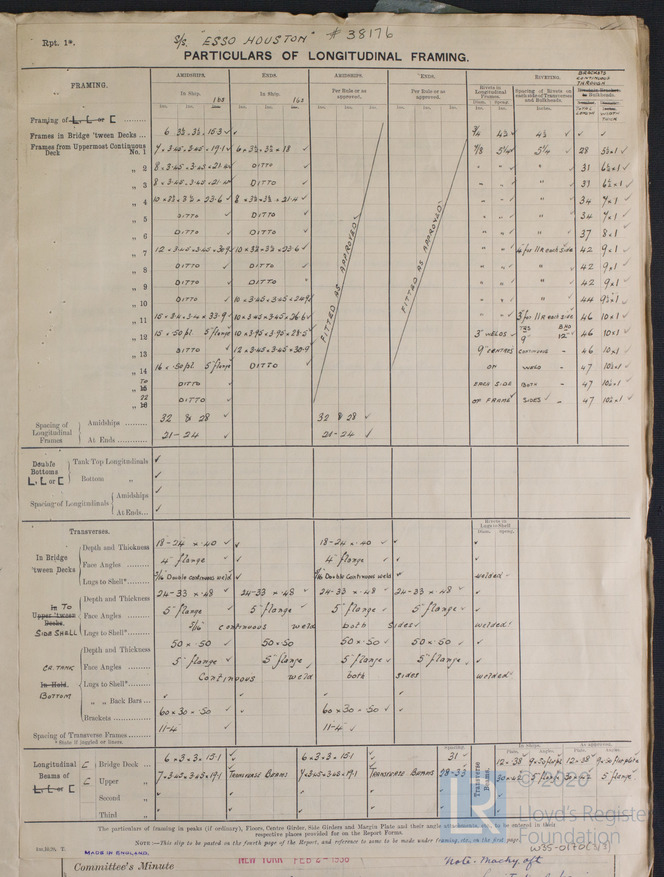 Rpt. 1*.
S/S. "ESSO HOUSTON" # 38176
PARTICULARS OF LONGITUDINAL FRAMING.
FRAMING. AMIDSHIPS. ENDS. AMIDSHIPS. ENDS. RIVETING. BRACKETS CONTINUOUS THROUGH
In Ship. In Ship. Per Rule or as approved. Per Rule or as approved. Rivets in Longitudinal Frames. Spacing of Rivets on each side of Transverses and Bulkheads. Bulkheads.
Framing of L, L or [
Frames in Bridge 'tween Decks ... 6 3½ . 3½ . 15.3 ✓ ¾ 4½ ✓ 4½ ✓ ✓ ✓
Frames from Uppermost Continuous Deck No. 1 7 × 3.45 × 3.45 × 19.1 ✓ 6 × 3½ × 3½ × 18 ✓ 7/8 5¼ ✓ 5¼ ✓ 28
„ 2 8 × 3.45 × 3.45 × 21.4 ✓ DITTO " " " 31 6½×1 ✓
„ 3 8 × 3.45 × 3.45 × 21.4 ✓ DITTO 33 6½×1 ✓
„ 4 10 × 3½ × 3½ × 23.6 ✓ 8 × 3½ × 3½ × 21.4 ✓ 34 7×1 ✓
„ 5 DITTO ✓ DITTO 34 7×1 ✓
„ 6 DITTO ✓ DITTO 37 8×1 ✓
„ 7 12 × 3.45 × 3.45 × 30.9 ✓ 10 × 3½ × 3½ × 23.6 ✓ 4 for 11R each side 42 9×1 ✓
„ 8 DITTO ✓ DITTO 42 9×1 ✓
„ 9 DITTO ✓ DITTO 42 9×1 ✓
„ 10 DITTO 10 × 3.45 × 3.45 × 24.9 44
„ 11 15 × 3.4 × 3.4 × 33.9 ✓ 10 × 3.45 × 3.45 × 26.6 ✓ 3 for 11R each side 46 10×1 ✓
„ 12 15 × .50 pl. 5" flange 10 × 3.95 × 3.95 × 28.5 3" WELDS ✓ 9" 12" 46 10×1 ✓
„ 13 DITTO ✓ 12 × 3.45 × 3.45 × 30.9 9" CENTRES CONTINUOUS 46 10×1 ✓
„ 14 16 × .50 pl. 5" flange DITTO OF WELD 47 10½×1 ✓
TO „ 15 DITTO EACH SIDE BOTH 47 10½×1 ✓
22 „ 16 DITTO OF FRAME SIDES ✓ 47 10½×1 ✓
FITTED AS APPROVED
FITTED AS APPROVED
Spacing of Longitudinal Frames { Amidships .......... 32 & 28 ✓ 32 & 28 ✓
At Ends .......... 21 - 24 ✓ 21 - 24 ✓
Double Bottoms L, L or [ { Tank Top Longitudinals ✓
Bottom „ ✓
Spacing of Longitudinals { Amidships ✓
At Ends... ✓
Transverses. Rivets in Lugs to Shell
In Bridge 'tween Decks { Depth and Thickness 18-24 × .40 ✓ ✓ 18-24 × .40 ✓ ✓
Face Angles .......... 4" flange ✓ 4" flange ✓
Lugs to Shell* .......... 5/16 Double continuous weld Double continuous weld welded
In To Upper 'tween Decks. SIDE SHELL { Depth and Thickness 24-33 × .48 ✓ 24-33 × .48 ✓ 24-33 × .48 ✓ 24-33 × .48 ✓
Face Angles .......... 5" flange ✓ 5" flange ✓ 5" flange ✓ 5" flange ✓
Lugs to Shell* .......... 5/16" continuous weld both sides ✓ welded
CR. TANK In Hold. BOTTOM { Depth and Thickness 50 × 50 ✓ 50 × 50 50 × 50 ✓ 50 × 50 ✓
Face Angles .......... 5" flange ✓ 5" flange 5" flange ✓ 5" flange ✓
Lugs to Shell* .......... Continuous weld both sides welded
„ „ Back Bars ... ✓
Brackets .......... 60 × 30 × .50 ✓ 60 × 30 × .50 ✓
Spacing of Transverse Frames .......... 11-4 ✓ 11-4 ✓
* State if joggled or liners.
Longitudinal Beams of L, L or [ { [ Bridge Deck ... 6 × 3 × 3 × 15.1 ✓ 6 × 3 × 3 × 15.1 ✓ Spacing. 31 ✓ In ships. As approved.
[ Upper „ 7 × 3.45 × 3.45 × 19.1 TRANSVERSE BEAMS 7 × 3.45 × 3.45 × 19.1 TRANSVERSE BEAMS 28-33
Second „ ✓
Third „ ✓
Transverse Beams. Plate. Angle. Plate. Angle.
12 × .38 12 × .38
5" flange 5" flange
The particulars of framing in peaks (if ordinary), Floors, Centre Girder, Side Girders and Margin Plate and their angle attachments, etc., to be entered in their respective places provided for on the Report Forms.
NOTE:—This slip to be pasted on the fourth page of the Report, and reference to same to be made under framing, etc., on the first page.
MADE IN ENGLAND.
© 2020
Lloyd's Register Foundation
LR
W35-0170(3/3)
Committee's Minute NEW YORK FEB 2 - 1938 Note: Machy. aft